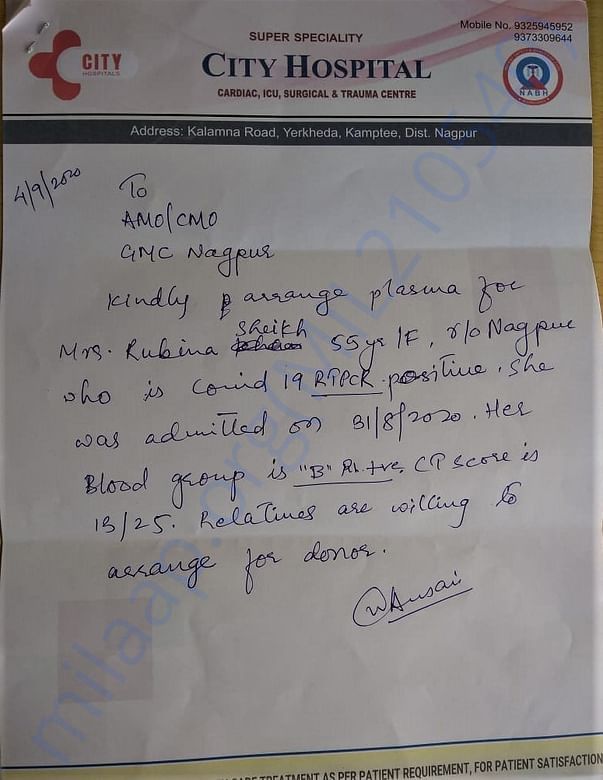 Mobile No. 9325945952
9373309644
SUPER SPECIALITY
CITY HOSPITAL
CITY
HOSPITALS
CARDIAC, ICU, SURGICAL & TRAUMA CENTRE
NABH
Address: Kalamna Road, Yerkheda, Kamptee, Dist. Nagpur
4/9/2020
To
AMO/CMO
GMC Nagpur
Kindly arrange plasma for
Mrs. Rubina Sheikh 55 yr/F, r/o Nagpur
who is Covid 19 RTPCR positive. She
was admitted on 31/8/2020. Her
Blood group is "B" Rh +ve. CT score is
13/25. Relatives are willing to
arrange for donor.
Ansari
CARE TREATMENT AS PER PATIENT REQUIREMENT, FOR PATIENT SATISFACTION